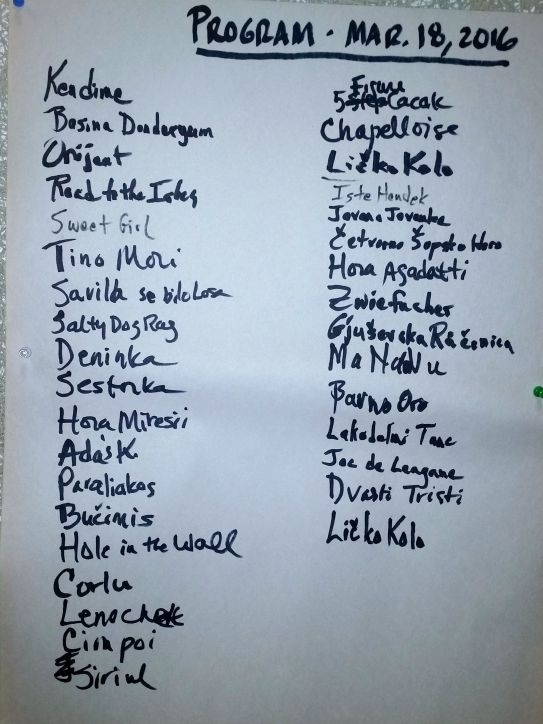 PROGRAM - MAR. 18, 2016
Kendime
Bosina Dondurgum
Orijent
Road to the Isles
Sweet Girl
Tino Mori
Savila se bilo Losa
Salty Dog Rag
Deninka
Šestorka
Hora Miresii
Adášk
Paraliakos
Bučimis
Hole in the Wall
Corlu
Lenochek
Cimpoi
Siriul
5 Figure Cacak
Chapelloise
Ličko Kolo
Iste Hendek
Jovano Jovanke
Četvorno Šopsko Horo
Hora Agadatti
Zwiefacher
Gjuševska Račenica
Ma Navu
Bavno Oro
Joc de Leagane
Dvasti Tristi
Ličko Kolo